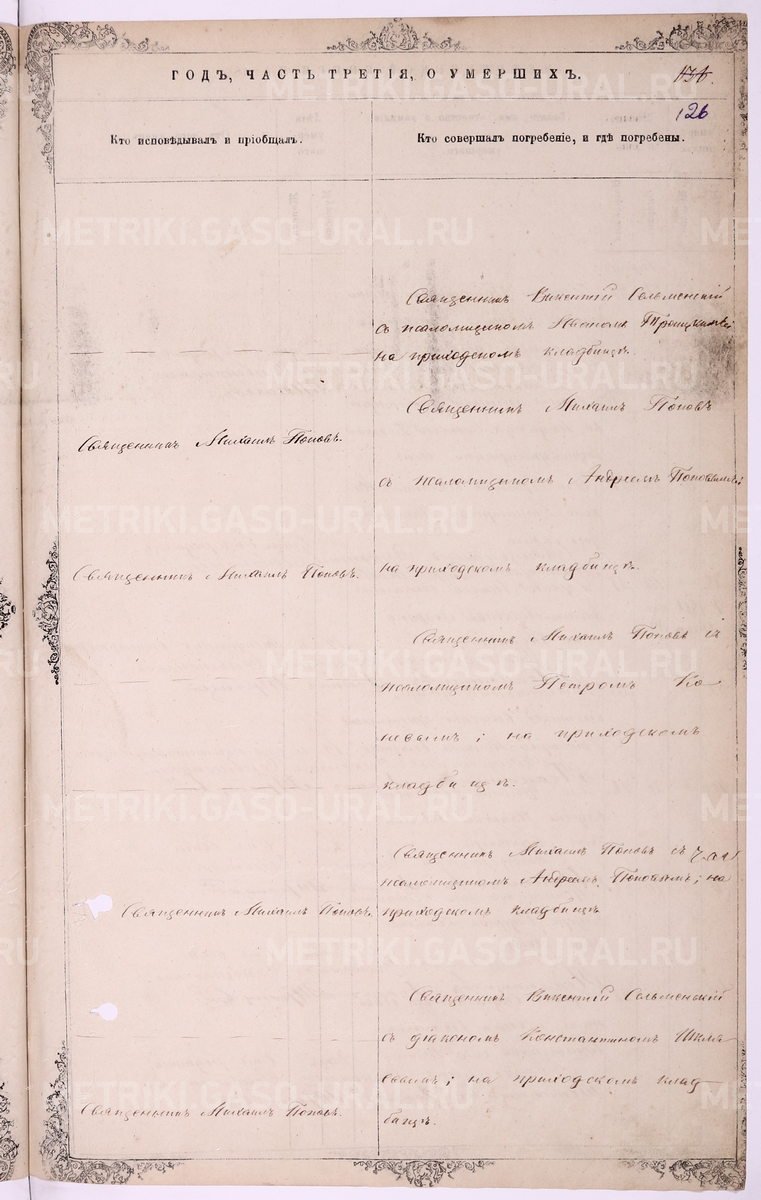 ГОДЪ, ЧАСТЬ ТРЕТІЯ, О УМЕРШИХЪ.
126
Кто исповѣдывалъ и пріобщалъ.
Кто совершалъ погребеніе, и гдѣ погребены.
METRIKI.GASO-URAL.RU
Священникъ Викентій Сельменскій
съ псаломщикомъ
на приходскомъ кладбищѣ.
Священникъ Михаилъ Поповъ
Священникъ Михаилъ Поповъ.
съ псаломщикомъ Андреемъ Поповымъ;
Священникъ Михаилъ Поповъ.
на приходскомъ кладбищѣ.
Священникъ Михаилъ Поповъ съ
псаломщикомъ Петромъ Ко
; на приходскомъ
кладбищѣ.
Священникъ Михаилъ Поповъ съ
псаломщикомъ Андреемъ Поповымъ; на
Священникъ Михаилъ Поповъ.
приходскомъ кладбищѣ
Священникъ Викентій Сельменскій
съ діакономъ Константиномъ
; на приходскомъ клад
Священникъ Михаилъ Поповъ.
бищѣ.